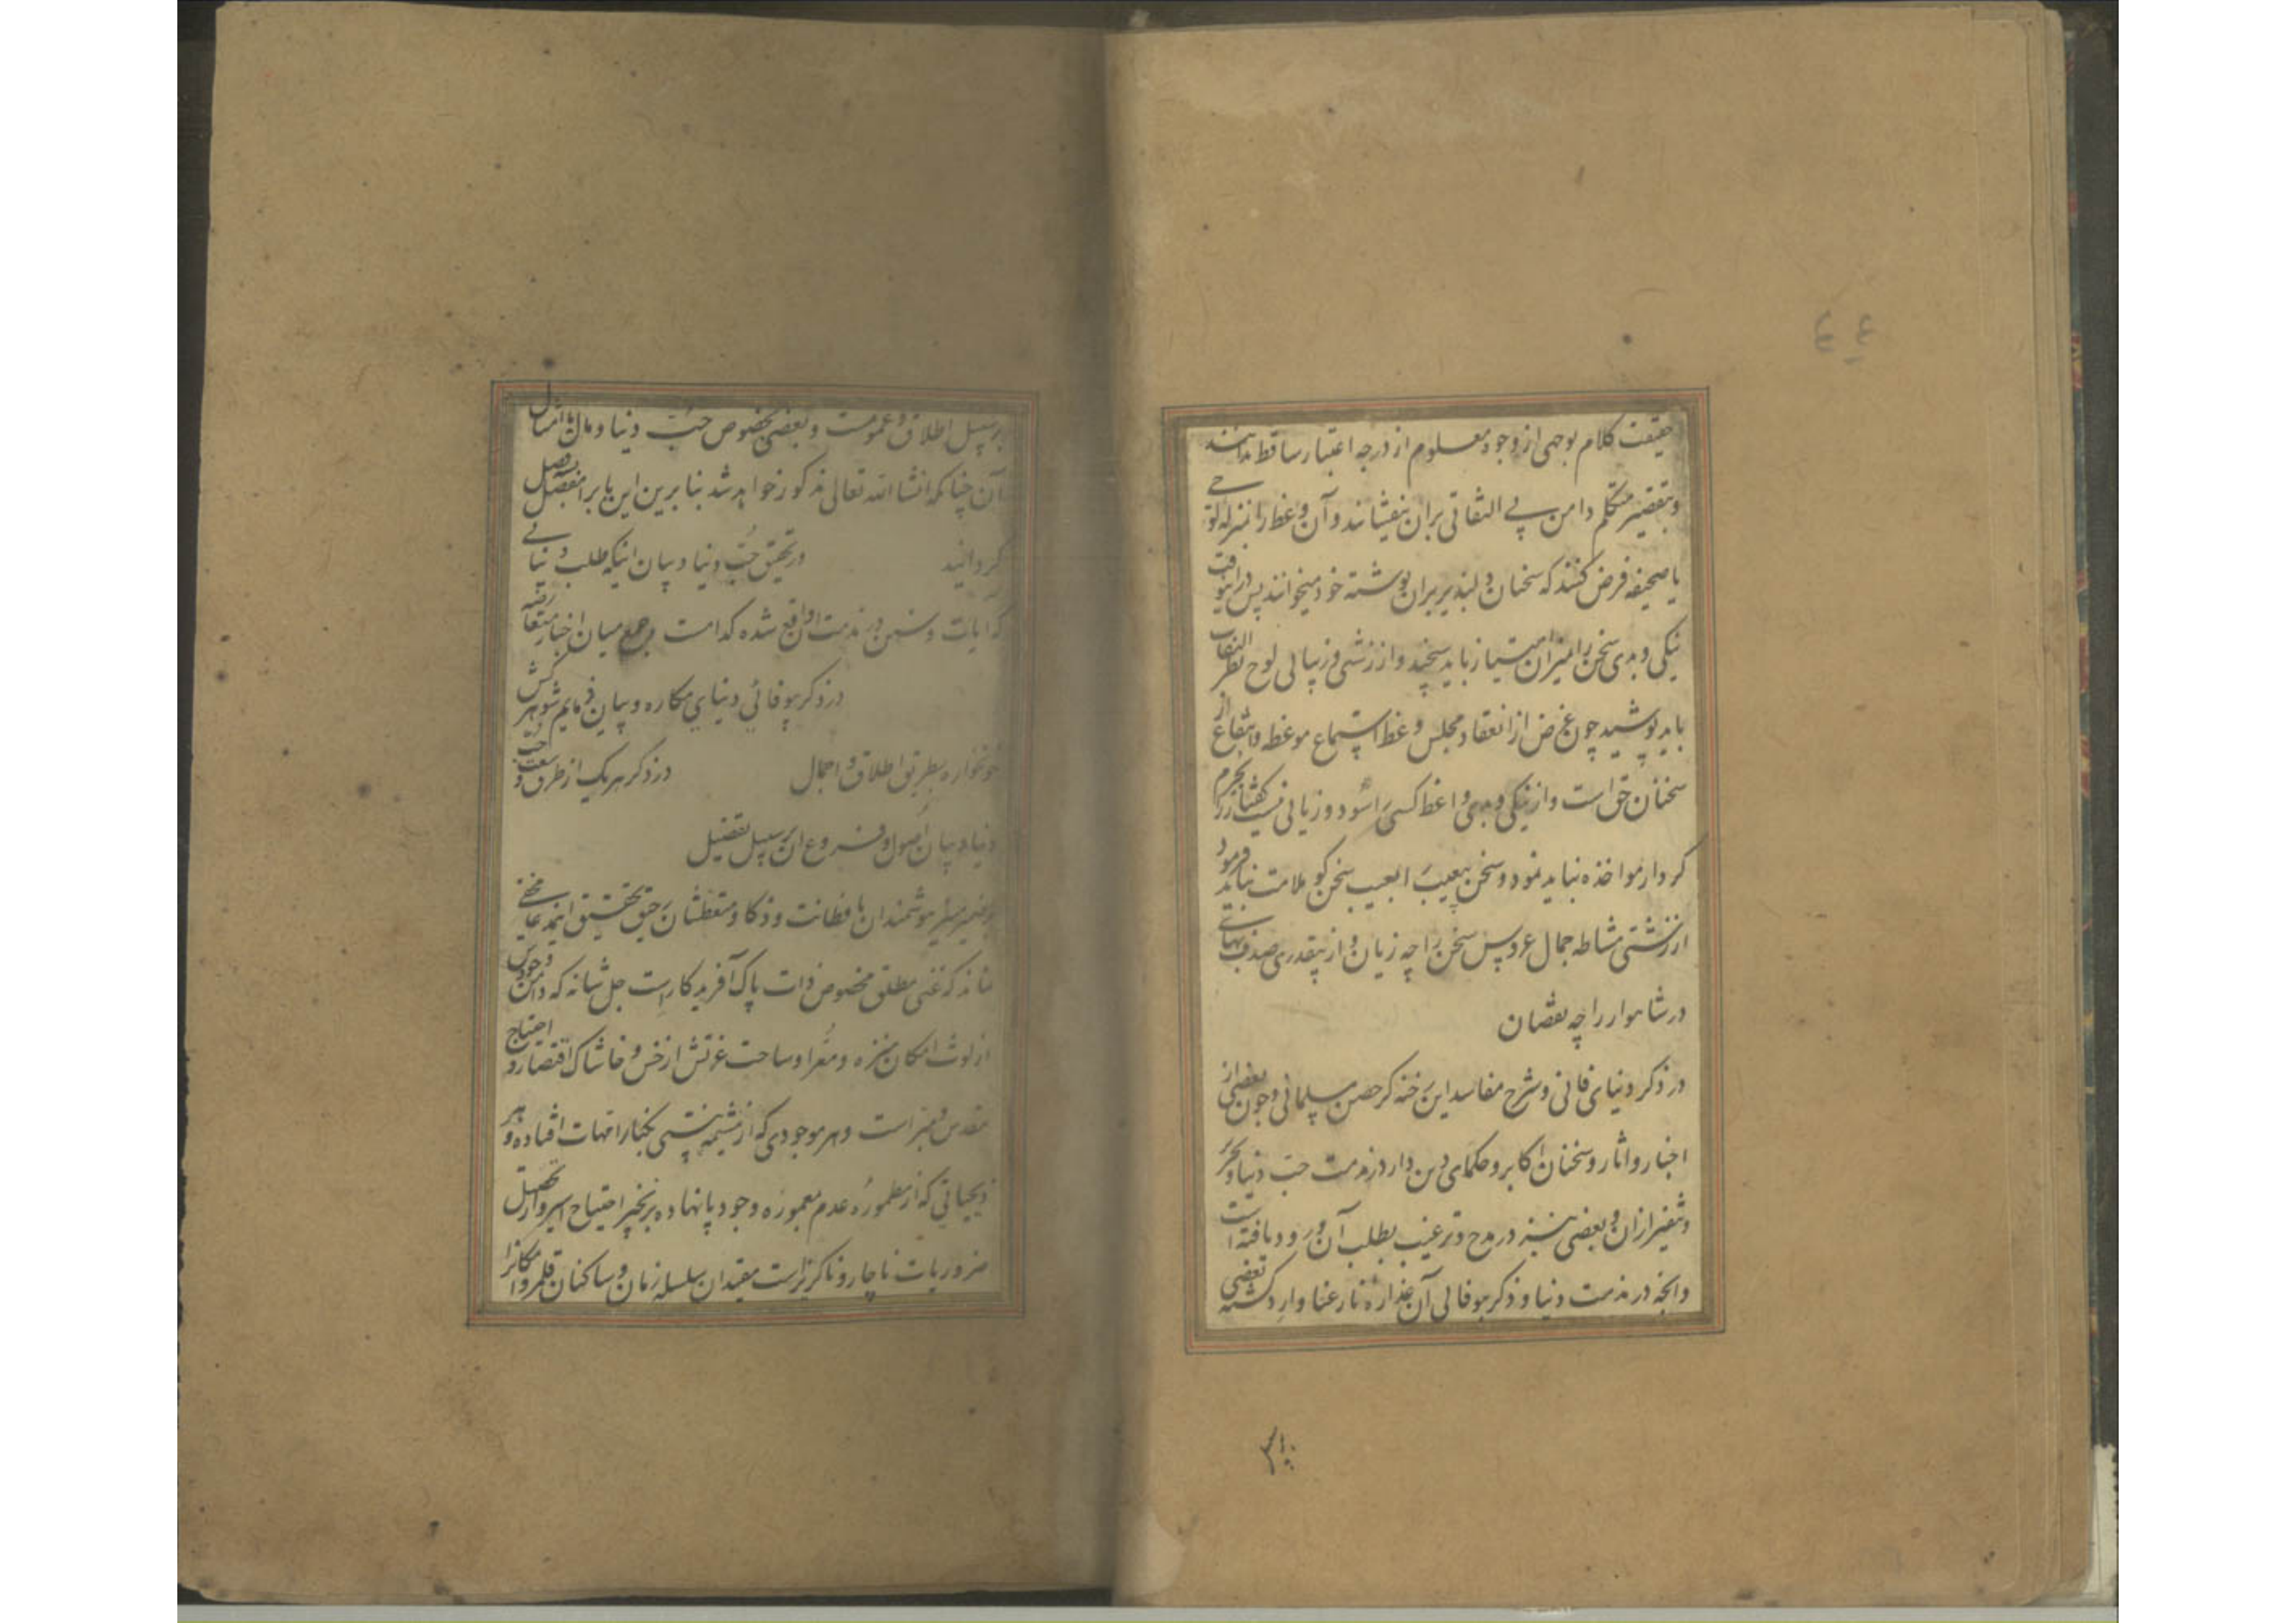 حقیقت کلام بوجهی از وجوه معلوم از درجه اعتبار ساقط ندانند
و بتقصیر متکلم دامن بی التفاتی بران نیفشانند و آن وعظ را بمنزله لوحی
یا صحیفه فرض کنند که سخنان دلپذیر بران نوشته خود میخوانند پس درینوقت
نیکی و بدی سخن را بمیزان امتیاز باید سنجید و از زشتی و زیبائی لوح نظر التفات
باید پوشید چون غرض از انعقاد مجلس وعظ استماع موعظه و انتفاع از
سخنان حق است و از نیکی و بدی واعظ کسی را سود و زیانی نیست گفتار را بجرم
کردار مواخذه نباید نمود و سخن بیعیب را بعیب سخن کو ملامت نباید فرمود
از زشتی مشاطه جمال عروس سخن را چه زیان و از بیقدری صدف بهای
در شاهوار را چه نقصان
در ذکر دنیای فانی و شرح مفاسد این رخنه کر حصن مسلمانی و چون بعضی از
اخبار و اثار و سخنان اکابر و حکمای دین دار در مذمت حب دنیا و تحذیر
و تنفیر ازان و بعضی نیز در مدح و ترغیب بطلب آن ورود یافته است
و انچه در مذمت دنیا و ذکر بیوفائی آن غداره نارعنا وارد کشته بعضی
۳۱
بر سبیل اطلاق و عمومست و بعضی بخصوص حب دنیا و مال یا امثال
آن چنانکه انشاء الله تعالی مذکور خواهد شد بنابرین این باب را مفصل بسه فصل
کردانید در تحقیق حب دنیا و بیان اینکه طلب دنیائی
که ایات و سنن در مذمت او واقع شده کدامست و جمع میان اخبار متعارضه
در ذکر بیوفائی دنیای مکاره و بیان ذمایم شوهر کش
خونخواره بطریق اطلاق و اجمال در ذکر هر یک از طرق وسعت حب
دنیا و بیان اصول و فروع ان بر سبیل تفضیل
بر ضمیر منیر هوشمندان با فطانت و ذکا و متعطشان رحیق تحقیق این مدعا مخفی
نماند که غنی مطلق مخصوص ذات پاک آفریدکار است جل شانه که دامن وجودش
از لوث امکان منزه و معرا و ساحت عزتش از خس و خاشاک افتقار و احتیاج
مقدس و مبراست و هر موجودی که از مشیمه نیستی بکنار امهات افتاده و هر
ذیحیاتی که از مطموره عدم بمعموره وجود پا نهاده بزنجیر احتیاج اسیر و از تحصیل
ضروریات ناچار و ناکزیر است مقیدان سلسله زمان و ساکنان قلمرو امکانرا